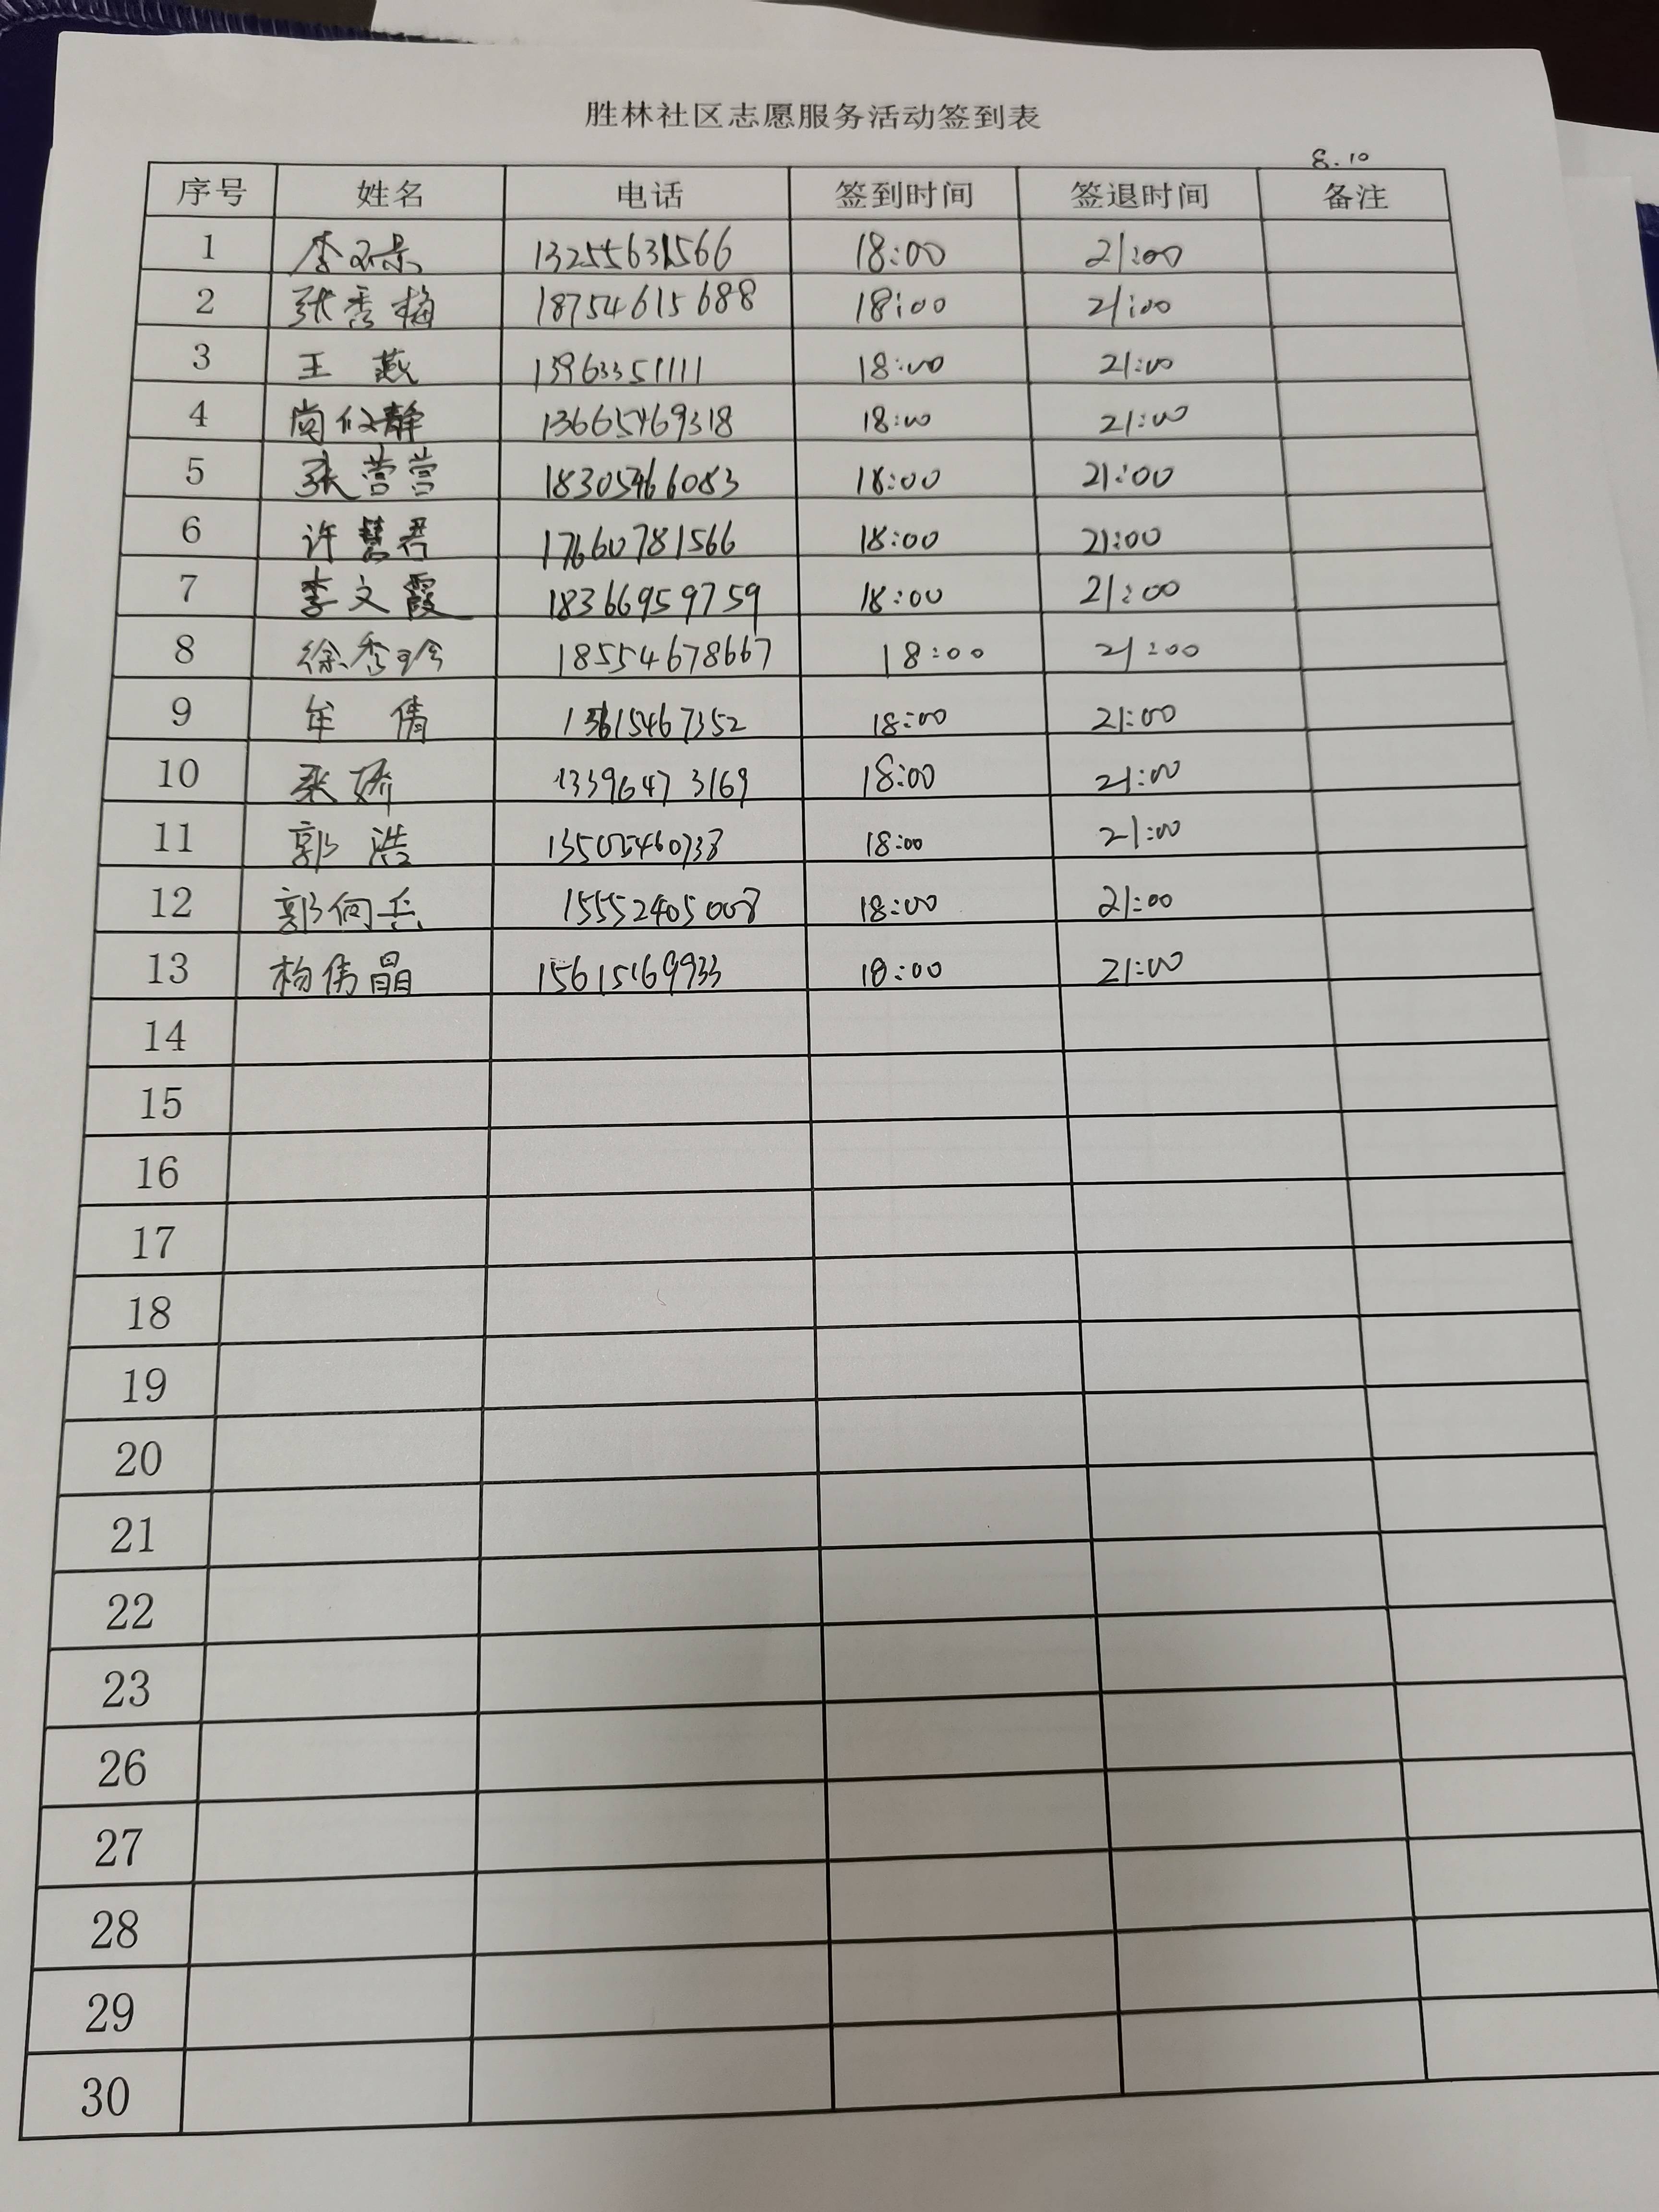 胜林社区志愿服务活动签到表
8.10
序号 姓名 电话 签到时间 签退时间 备注
1 李 13255631566 18:00 21:00
2 张秀梅 18754615688 18:00 21:00
3 王燕 13963351111 18:00 21:00
4 尚仪静 13665469318 18:00 21:00
5 张营营 18305466083 18:00 21:00
6 许慧君 17660781566 18:00 21:00
7 李文霞 18366959759 18:00 21:00
8 徐秀玲 18554678667 18:00 21:00
9 牟倩 13615467352 18:00 21:00
10 张娇 13396473169 18:00 21:00
11 郭浩 13505460738 18:00 21:00
12 郭向兵 15552405008 18:00 21:00
13 杨伟晶 15615169933 18:00 21:00
14
15
16
17
18
19
20
21
22
23
26
27
28
29
30